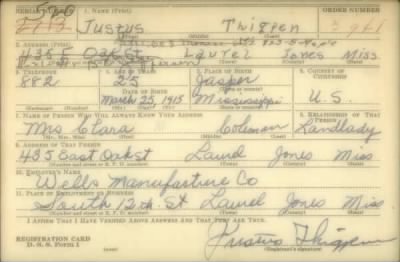 SERIAL NUMBER 1. NAME (Print) ORDER NUMBER
Justus Thigpen 941
2. ADDRESS (Print)
435 Oak St Laurel Jones Miss
(Number and street or R. F. D. number) (Town) (County) (State)
3. TELEPHONE 4. AGE IN YEARS 5. PLACE OF BIRTH 6. COUNTRY OF CITIZENSHIP
882 25 Jasper
DATE OF BIRTH
March 25, 1915 Mississippi U. S.
(Exchange) (Number) (Mo.) (Day) (Yr.) (State or country)
7. NAME OF PERSON WHO WILL ALWAYS KNOW YOUR ADDRESS 8. RELATIONSHIP OF THAT PERSON
Mrs Clara Coleman Landlady
(Mr., Mrs., Miss) (First) (Middle) (Last)
9. ADDRESS OF THAT PERSON
435 East Oak st Laurel Jones Miss
(Number and street or R. F. D. number) (Town) (County) (State)
10. EMPLOYER'S NAME
Wells Manufacture Co
11. PLACE OF EMPLOYMENT OR BUSINESS
South 12th. St Laurel Jones Miss
(Number and street or R. F. D. number) (Town) (County) (State)
I AFFIRM THAT I HAVE VERIFIED ABOVE ANSWERS AND THAT THEY ARE TRUE.
REGISTRATION CARD
D. S. S. Form 1
Justus Thigpen
(Registrant's signature)